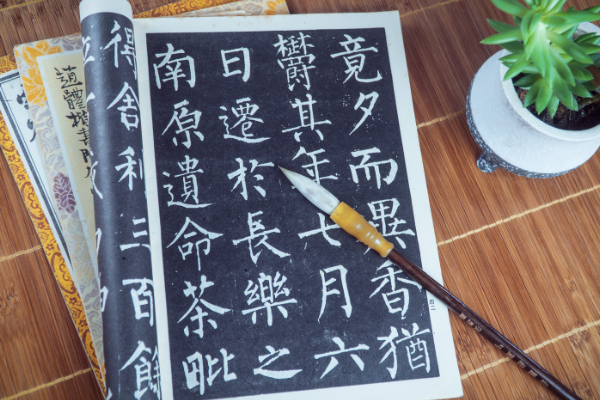 竟夕而異香猶
欝其年七月六
日遷於長樂之
南原遺命茶毗
得舍利三百餘
四二